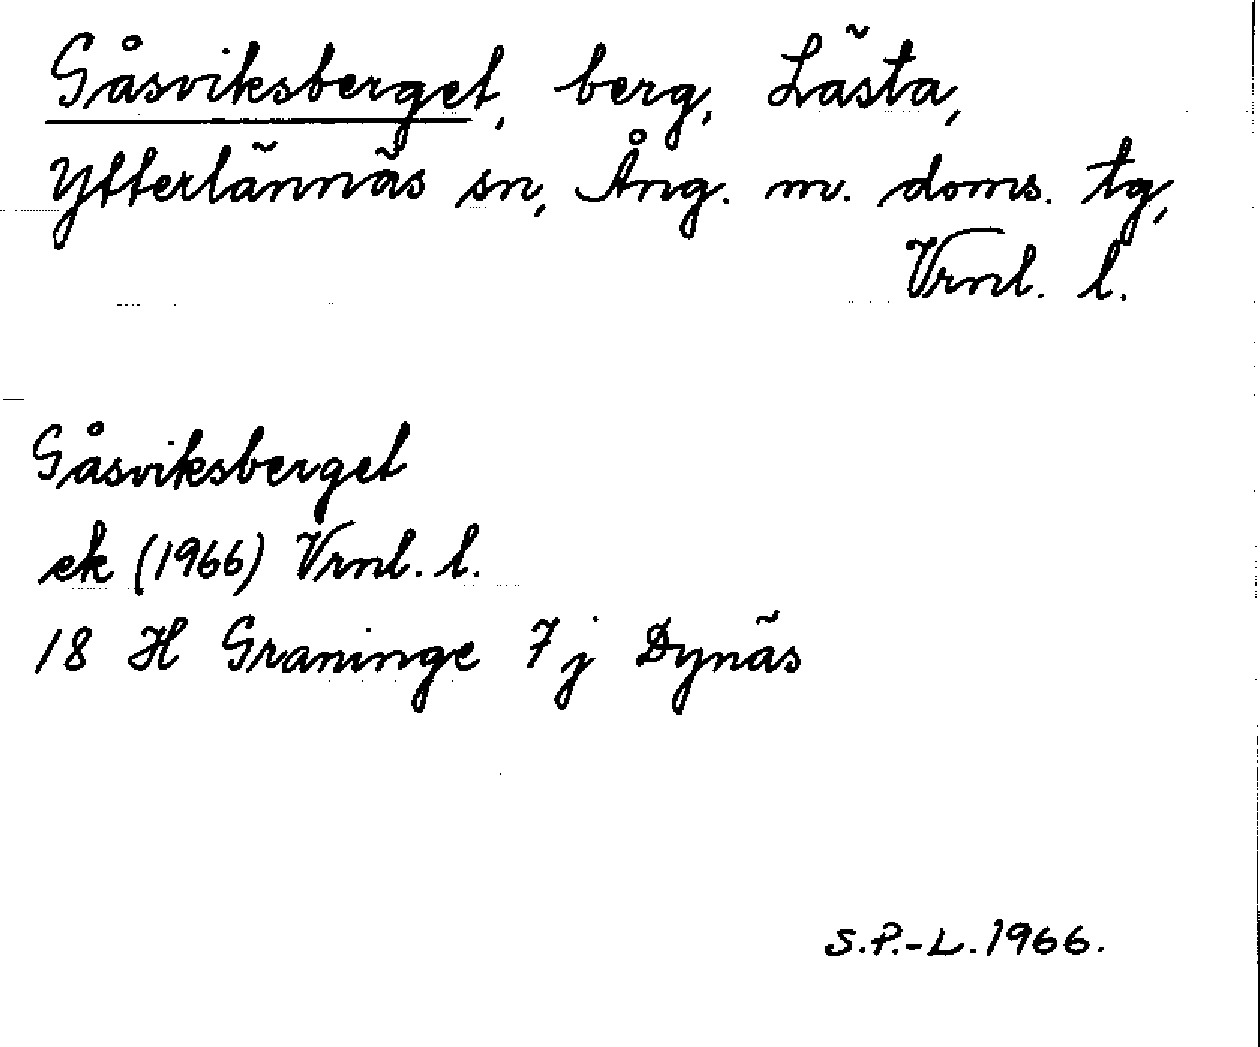 Gåsviksberget, berg, Lästa,
Ytterlännäs sn, Ång. m. doms. tg,
Vrnl. l.
Gåsviksberget
ek (1966) Vrnl. l.
18 H Graninge 7 j Dynäs
S.P.-L. 1966.